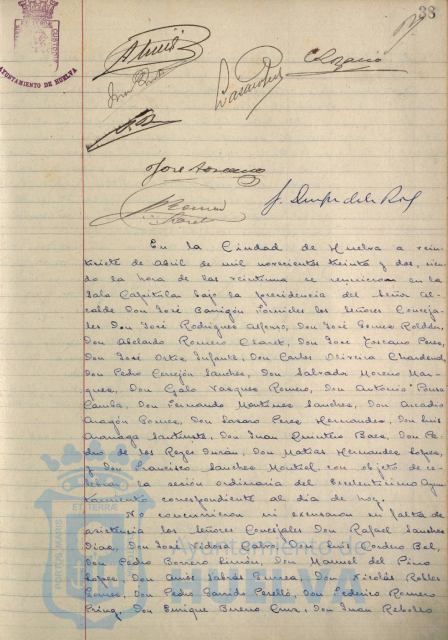 38
AYUNTAMIENTO DE HUELVA
José Toscano
En la Ciudad de Huelva a vein-
tisiete de Abril de mil novecientos treinta y dos, sien-
do la hora de las veintiuna se reunieron en la
Sala Capitular bajo la presidencia del Señor Al-
calde Don José Barrigón Fornieles los Señores Conceja-
les Don José Rodríguez Alfonso, Don José Gomez Roldán,
Don Abelardo Romero Claret, Don José Toscano Perez,
Don José Ortiz Infante, Don Carlos Oliveira Chardenal,
Don Pedro Cerejón Sanchez, Don Salvador Moreno Mar-
quez, Don Galo Vazquez Romero, Don Antonio Ponce
Don Fernando Martinez Sanchez, Don Arcadio
Aragón Gomez, Don Lazaro Perez Hernandez, Don Luis
Don Juan Quintero Baez, Don Pe-
dro de los Reyes Durán, Don Matías Hernandez Lopez,
y Don Francisco Sanchez Montiel con objeto de ce-
lebrar la sesión ordinaria del Excelentisimo Ayun-
tamiento correspondiente al dia de hoy.
No concurrieron ni excusaron su falta de
asistencia los Señores Concejales Don Rafael Sanchez
Diaz, Don José Vidosa Calvo, Don Luis Cordero Bel,
Don Pedro Borrero Limón, Don Manuel del Pino
Lopez, Don Amós Sabrás Gurrea, Don Nicolás Robles
Gomez, Don Pedro Garrido Perelló, Don Federico Romero
Don Enrique Bueno Cruz, Don Juan Rebollo
PORTUS MARIS ET TERRAE
Ayuntamiento de
HUELVA